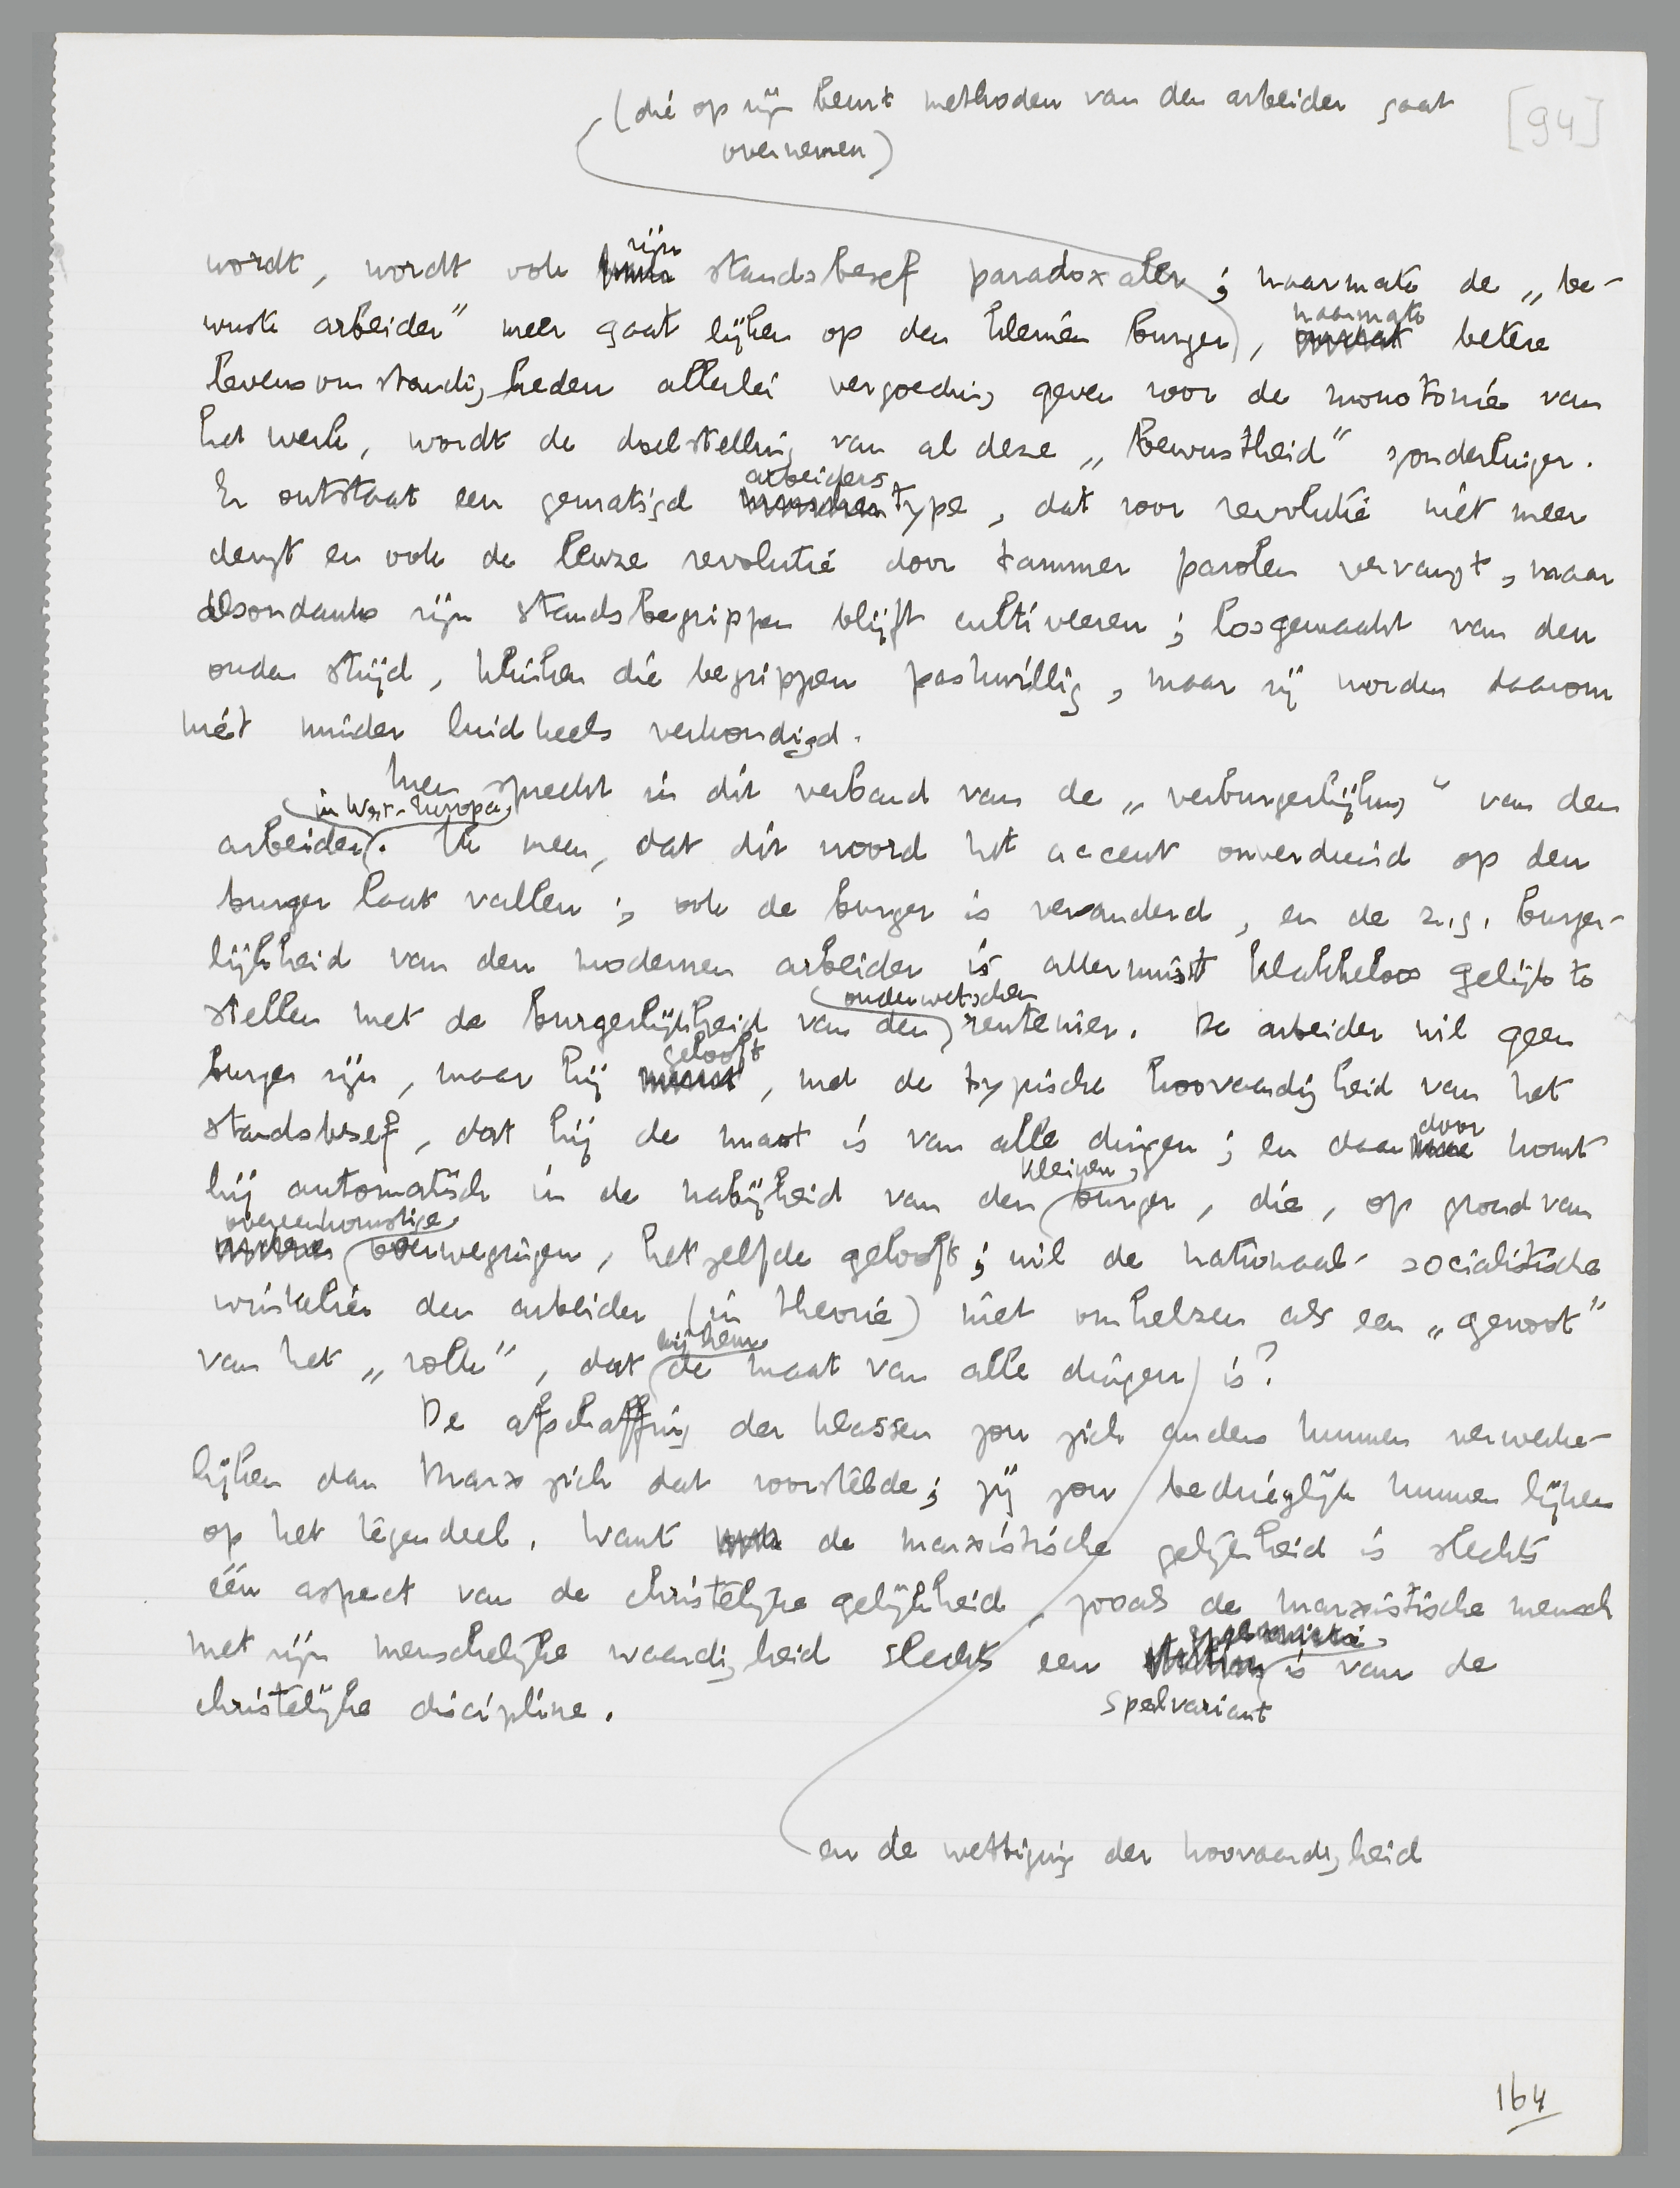 (die op zijn beurt methoden van den arbeider gaat
overnemen)
[94]
zijn
wordt, wordt ook standsbesef paradoxaler; naarmate de „be-
naarmate
wuste arbeider” meer gaat lijken op den kleinen burger, omdat betere
levensomstandigheden allerlei vergoeding geven voor de monotonie van
het werk, wordt de doelstelling van al deze „bewustheid” zonderlinger.
arbeiders
Er ontstaat een gematigd menschentype, dat voor revolutie niet meer
deugt en ook de leuze revolutie door tammer parolen vervangt, maar
desondanks zijn standsbegrippen blijft cultiveeren; losgemaakt van den
ouden strijd, klinken die begrippen potsierlijk, maar zij worden daarom
niet minder luidkeels verkondigd.
Men spreekt in dit verband van de „verburgerlijking” van den
in West-Europa
arbeider. Ik meen, dat dit woord het accent onverdiend op den
burger laat vallen; ook de burger is veranderd, en de z.g. burger-
lijkheid van den modernen arbeider is allerminst klakkeloos gelijk te
ouderwetschen
stellen met de burgerlijkheid van den rentenier. De arbeider wil geen
gelooft
burger zijn, maar hij meent, met de typische hoovaardigheid van het
door
standsbesef, dat hij de maat is van alle dingen; en daarmee komt
kleinen
hij automatisch in de nabijheid van den burger, die, op grond van
overeenkomstige
andere overwegingen, hetzelfde gelooft; wil de nationaal-socialistische
winkelier den arbeider (in theorie) niet omhelzen als een „genoot”
bij hem
van het „volk”, dat de maat van alle dingen is?
De afschaffing der klassen zou zich anders kunnen verwerke-
lijken dan Marx zich dat voorstelde; zij zou bedriegelijk kunnen lijken
op het tegendeel. Want ook de marxistische gelijkheid is slechts
één aspect van de christelijke gelijkheid, zooals de marxistische mensch
met zijn menschelijke waardigheid slechts een is van de
spelvariant
christelijke discipline.
en de wettiging der hoovaardigheid
164